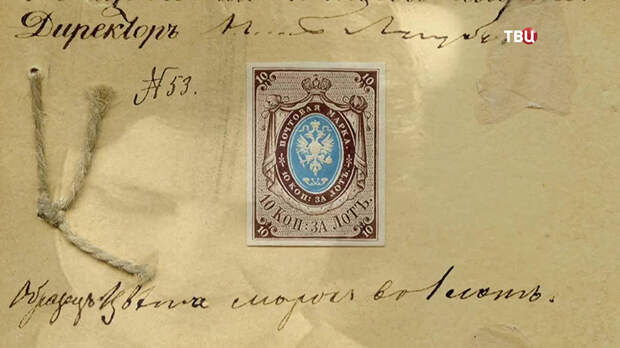 Директоръ
ТВЦ
№ 53.
10 10
ПОЧТОВАЯ МАРКА.
10 КОП: ЗА ЛОТЪ.
10 КОП: ЗА ЛОТЪ.
10 10
Образецъ цвѣта марки во 1 лотъ.